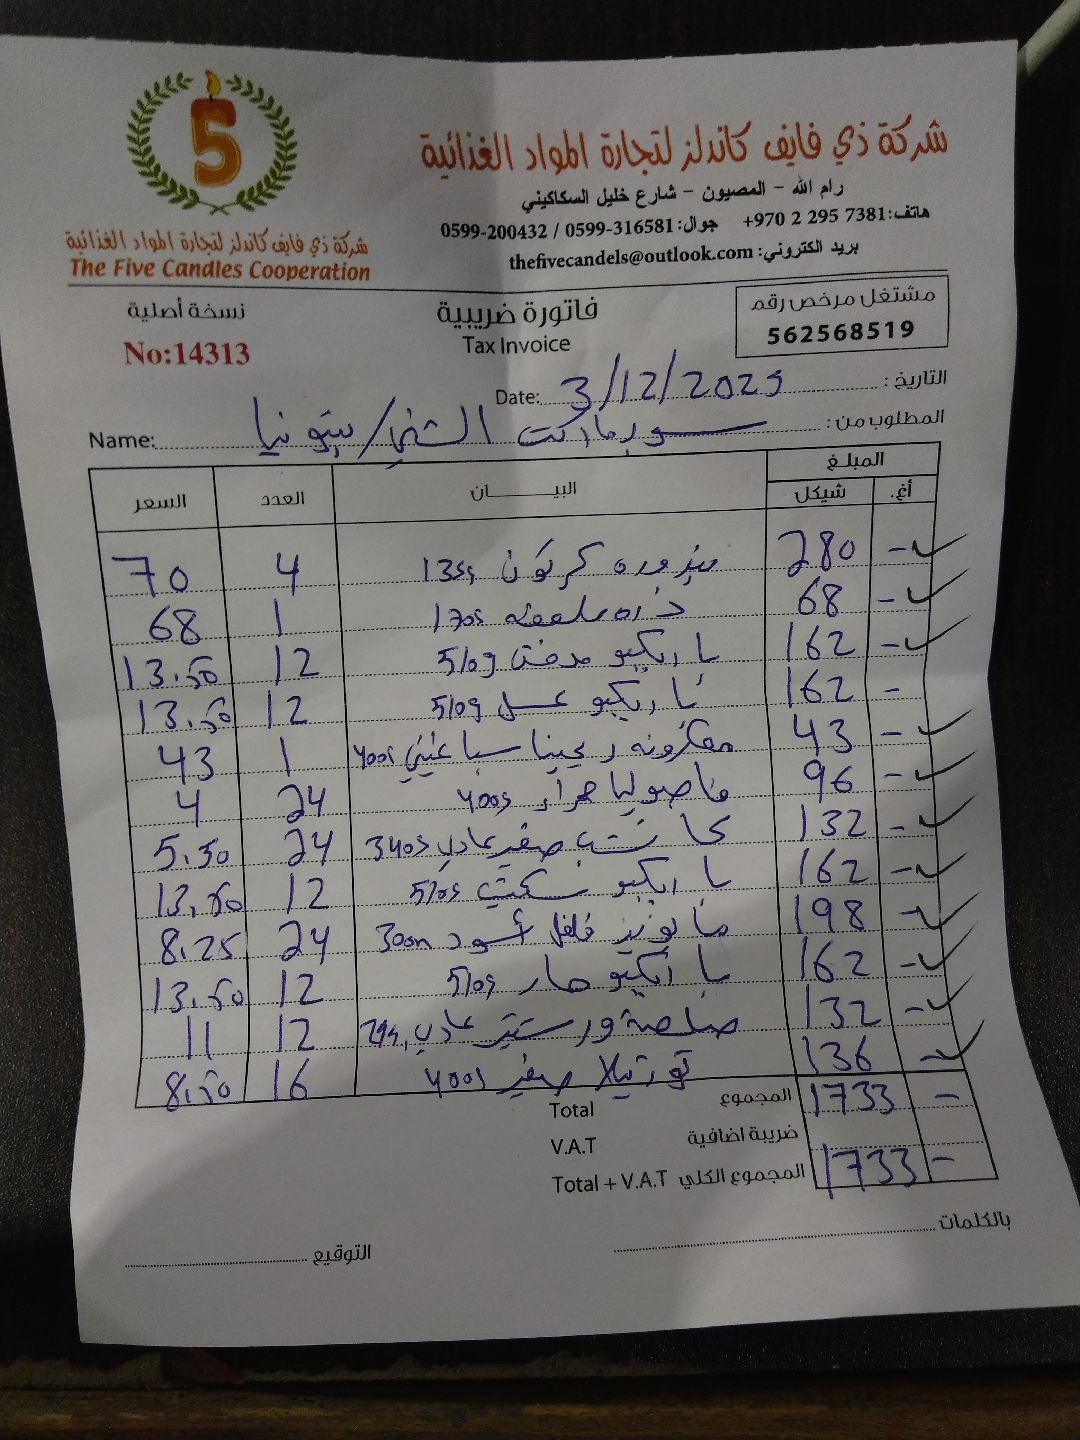 5
شركة ذي فايف كاندلز لتجارة المواد الغذائية
The Five Candles Cooperation
شركة ذي فايف كاندلز لتجارة المواد الغذائية
رام الله - المصيون - شارع خليل السكاكيني
هاتف: +970 2 295 7381 جوال: 0599-316581 / 0599-200432
بريد الكتروني: thefivecandels@outlook.com
نسخة أصلية
No:14313
فاتورة ضريبية
Tax Invoice
مشتغل مرخص رقم
562568519
التاريخ: Date: 3/12/2025
المطلوب من: سوبرماركت الشني/بيتونيا Name:
المبلغ
أغ. شيكل البيـــــان العدد السعر
- 280 بندوره كرتون 135g 4 70
- 68 ذره 170g 1 68
- 162 باربكيو مدخن 510g 12 13.50
- 162 باربكيو عسل 510g 12 13.50
- 43 معكرونه ريجينا سباغيتي 400g 1 43
- 96 فاصوليا حمراء 400g 24 4
- 132 كاتشب صغير عادي 340g 24 5.50
- 162 باربكيو 510g 12 13.50
- 198 مايونيز فلفل أسود 300m 24 8.25
- 162 باربكيو حار 510g 12 13.50
- 132 صلصة ورستير عادي 12 11
- 136 تورتيلا صغير 400g 16 8.50
المجموع Total 1733 -
ضريبة اضافية V.A.T
المجموع الكلي Total + V.A.T 1733 -
بالكلمات
التوقيع